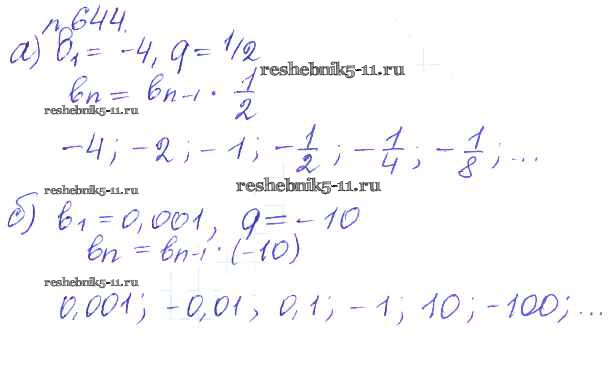 n 644.
а) b₁ = -4, q = 1/2
reshebnik5-11.ru
bₙ = bₙ₋₁ · 1/2
reshebnik5-11.ru
-4; -2; -1; -1/2; -1/4; -1/8; ...
reshebnik5-11.ru
reshebnik5-11.ru
б) b₁ = 0,001, q = -10
bₙ = bₙ₋₁ · (-10)
reshebnik5-11.ru
0,001; -0,01; 0,1; -1; 10; -100; ...